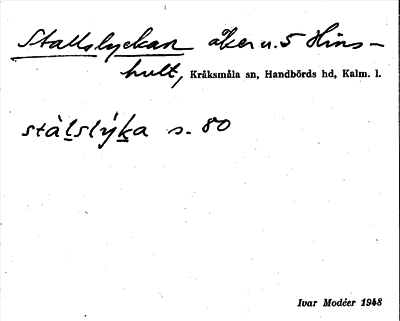 Stallslyckan åker u. 5 Hins-
hult, Kråksmåla sn, Handbörds hd, Kalm. l.
stàl̲slýk̲a s. 80
Ivar Modéer 1948